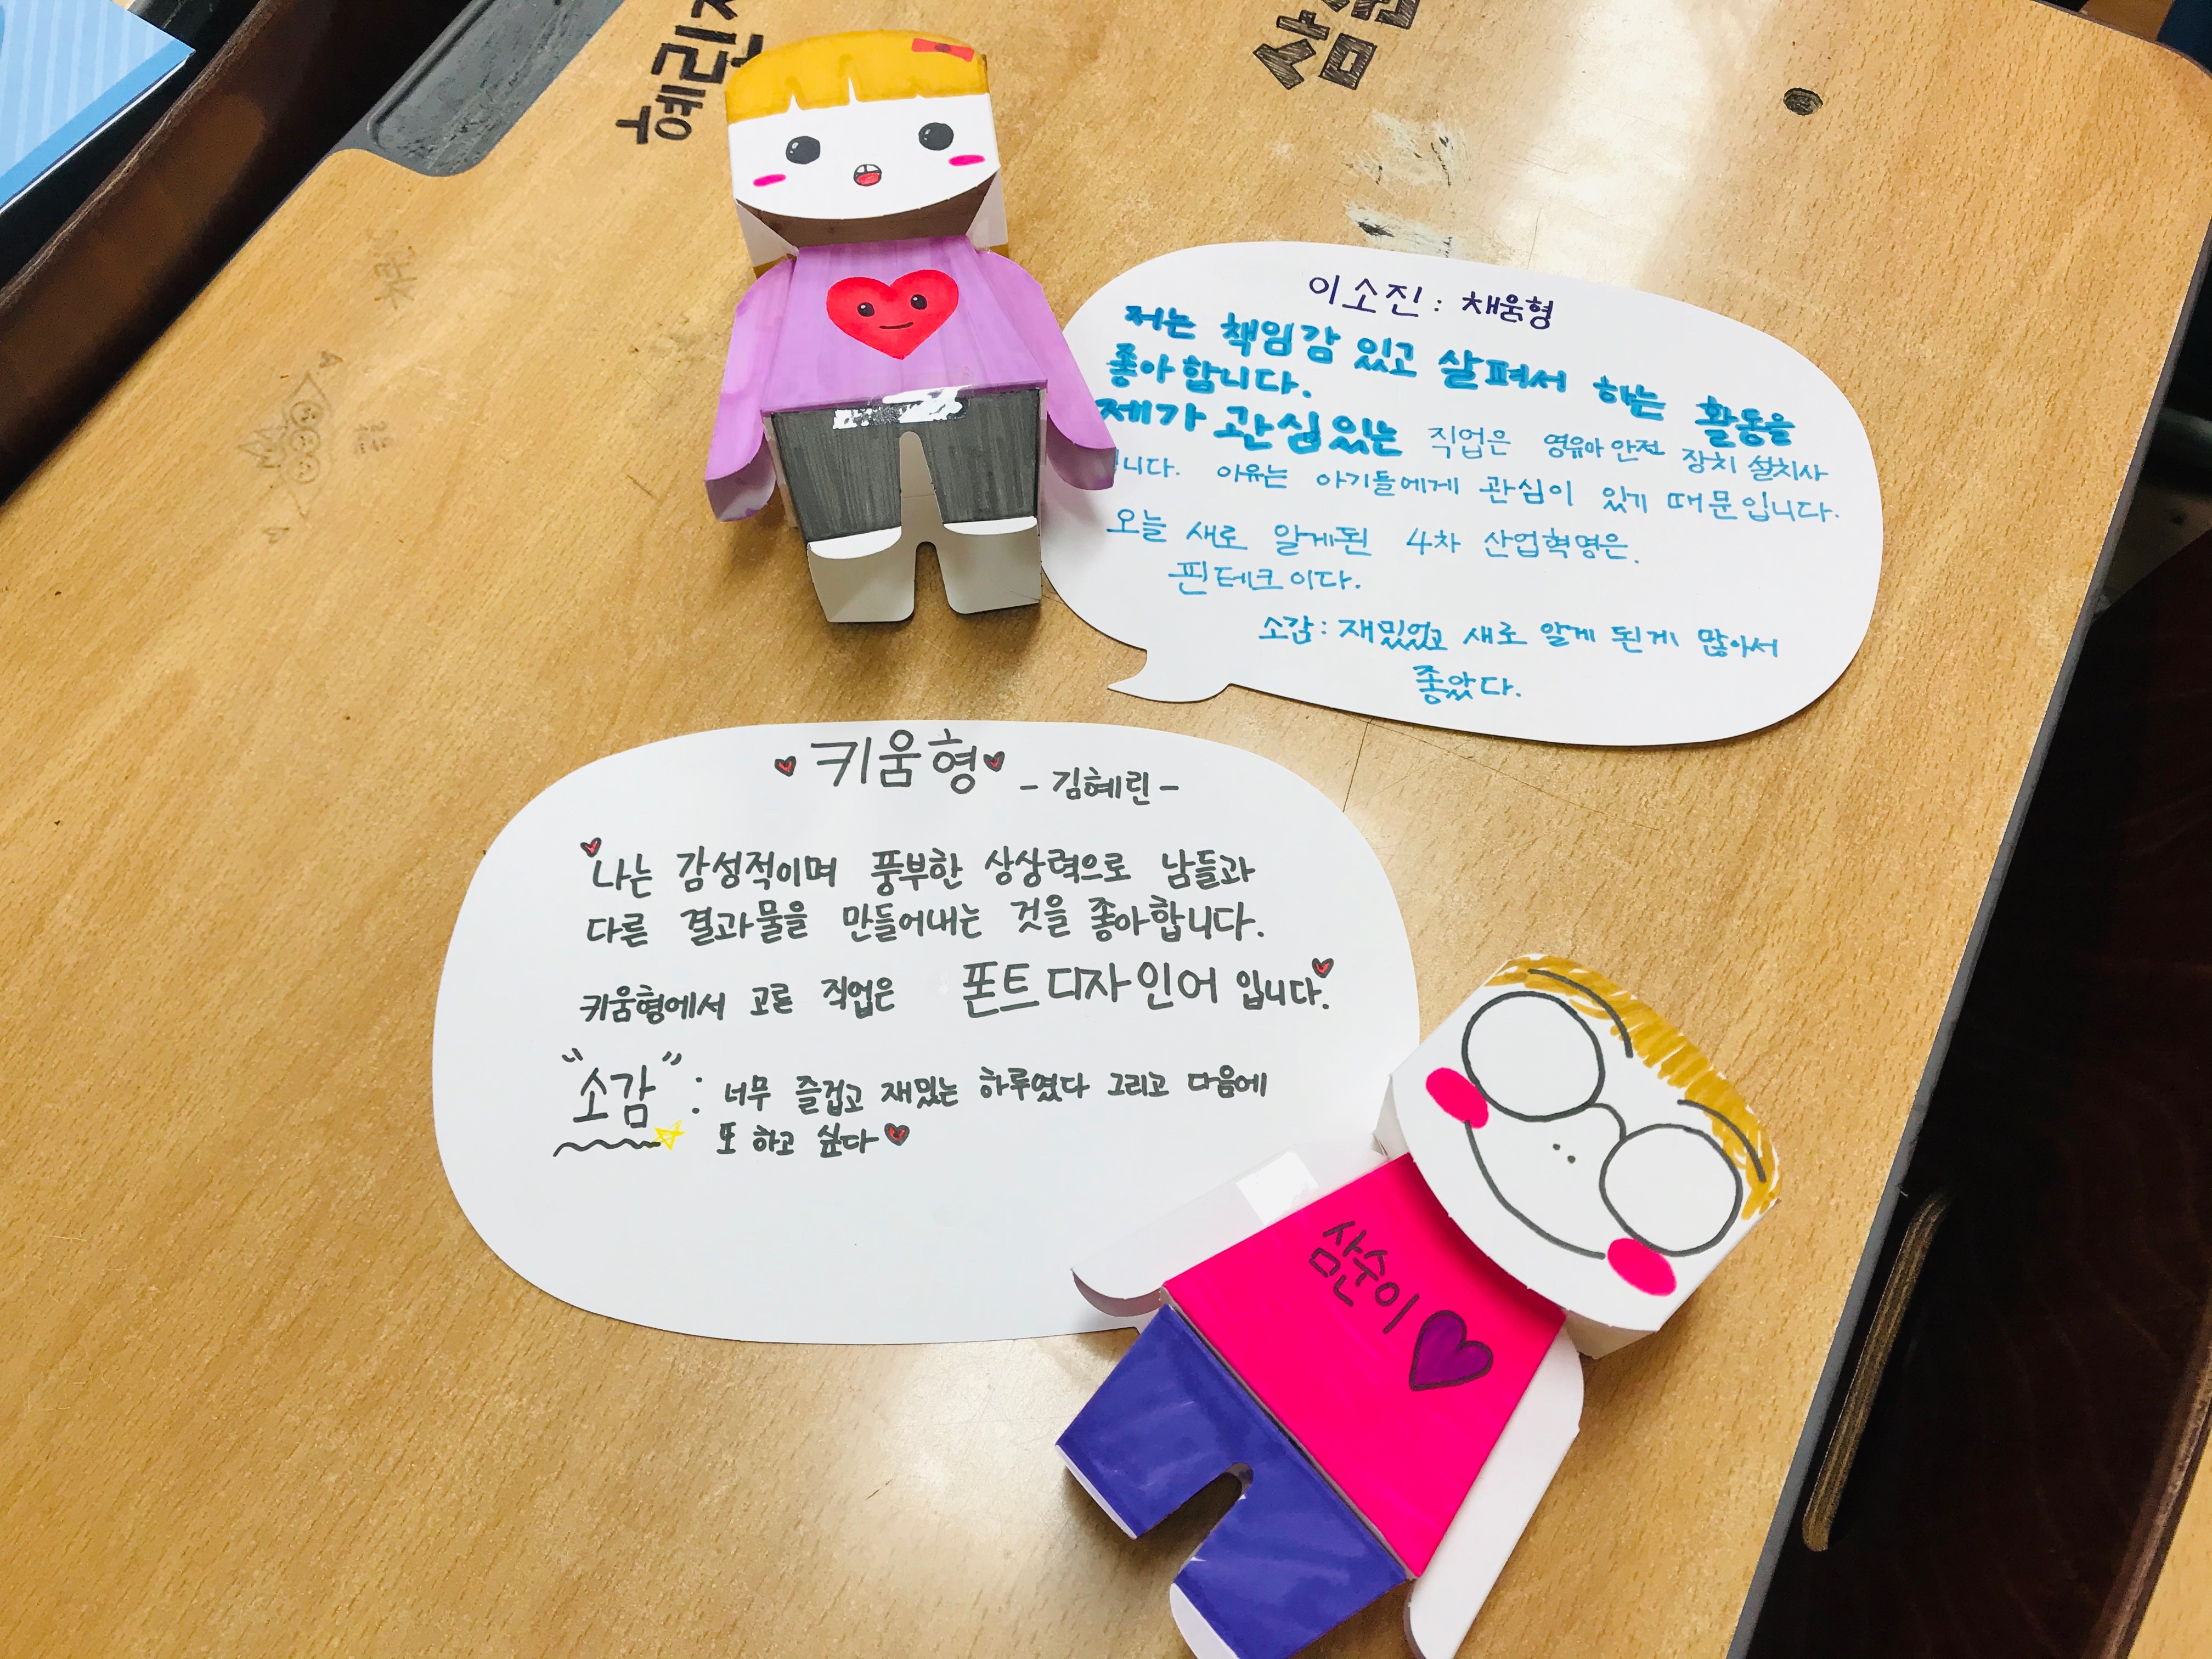 이소진: 채움형
저는 책임감 있고 살펴서 하는 활동을
좋아합니다.
제가 관심있는 직업은 영유아 안전 장치 설치사
니다. 이유는 아기들에게 관심이 있기 때문입니다.
오늘 새로 알게된 4차 산업혁명은.
핀테크이다.
소감: 재밌었고 새로 알게 된게 많아서
좋았다.
키움형 - 김혜린 -
나는 감성적이며 풍부한 상상력으로 남들과
다른 결과물을 만들어내는 것을 좋아합니다.
키움형에서 고른 직업은 폰트디자인어 입니다.
"소감" : 너무 즐겁고 재밌는 하루였다 그리고 다음에
또 하고 싶다
삼순이
혜린